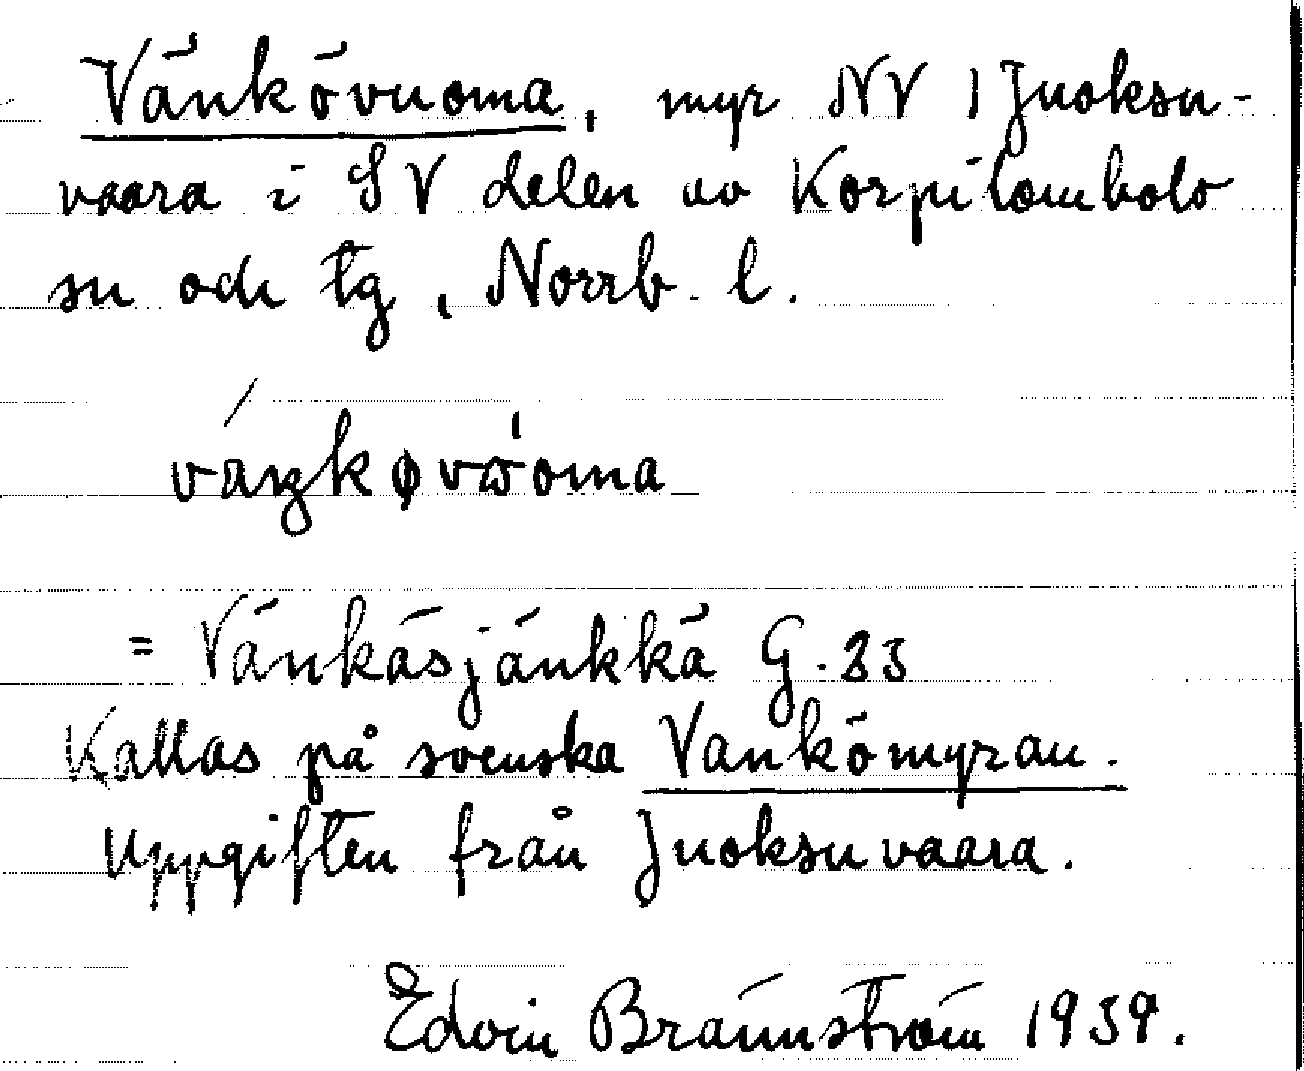 Vänkövuoma, myr NV i Juoksu-
vaara i SV delen av Korpilombolo
sn och tg, Norrb. l.
väŋkøvωoma
= Vänkäsjänkkä G. 33
Kallas på svenska Vankömyran.
Uppgiften från Juoksuvaara.
Edvin Brännström 1939.